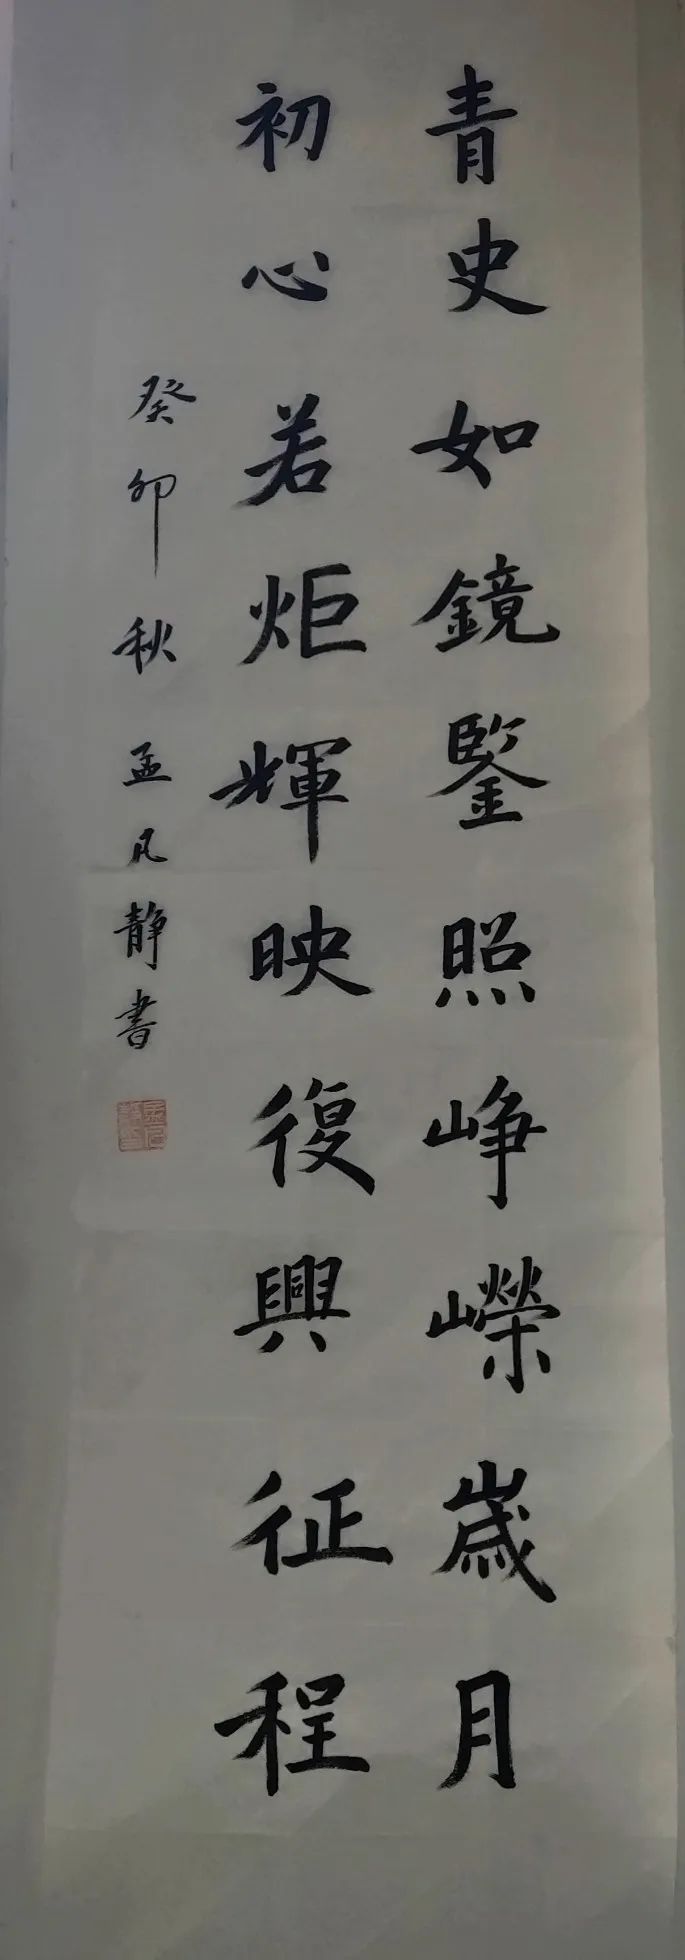 青史如鏡鑒照峥嶸歲月
初心若炬輝映復興征程
癸卯秋孟凡靜書